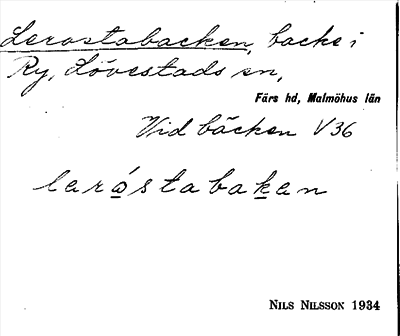 Lerostabacken, backe i
Ry, Lövestads sn,
Färs hd, Malmöhus län
Vid bäcken V36
laróstabakan
NILS NILSSON 1934